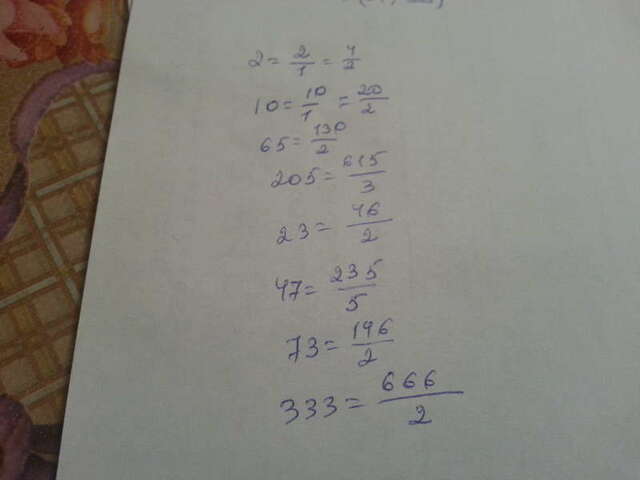 2 = 2/1 = 4/2
10 = 10/1 = 20/2
65 = 130/2
205 = 615/3
23 = 46/2
47 = 235/5
73 = 146/2
333 = 666/2